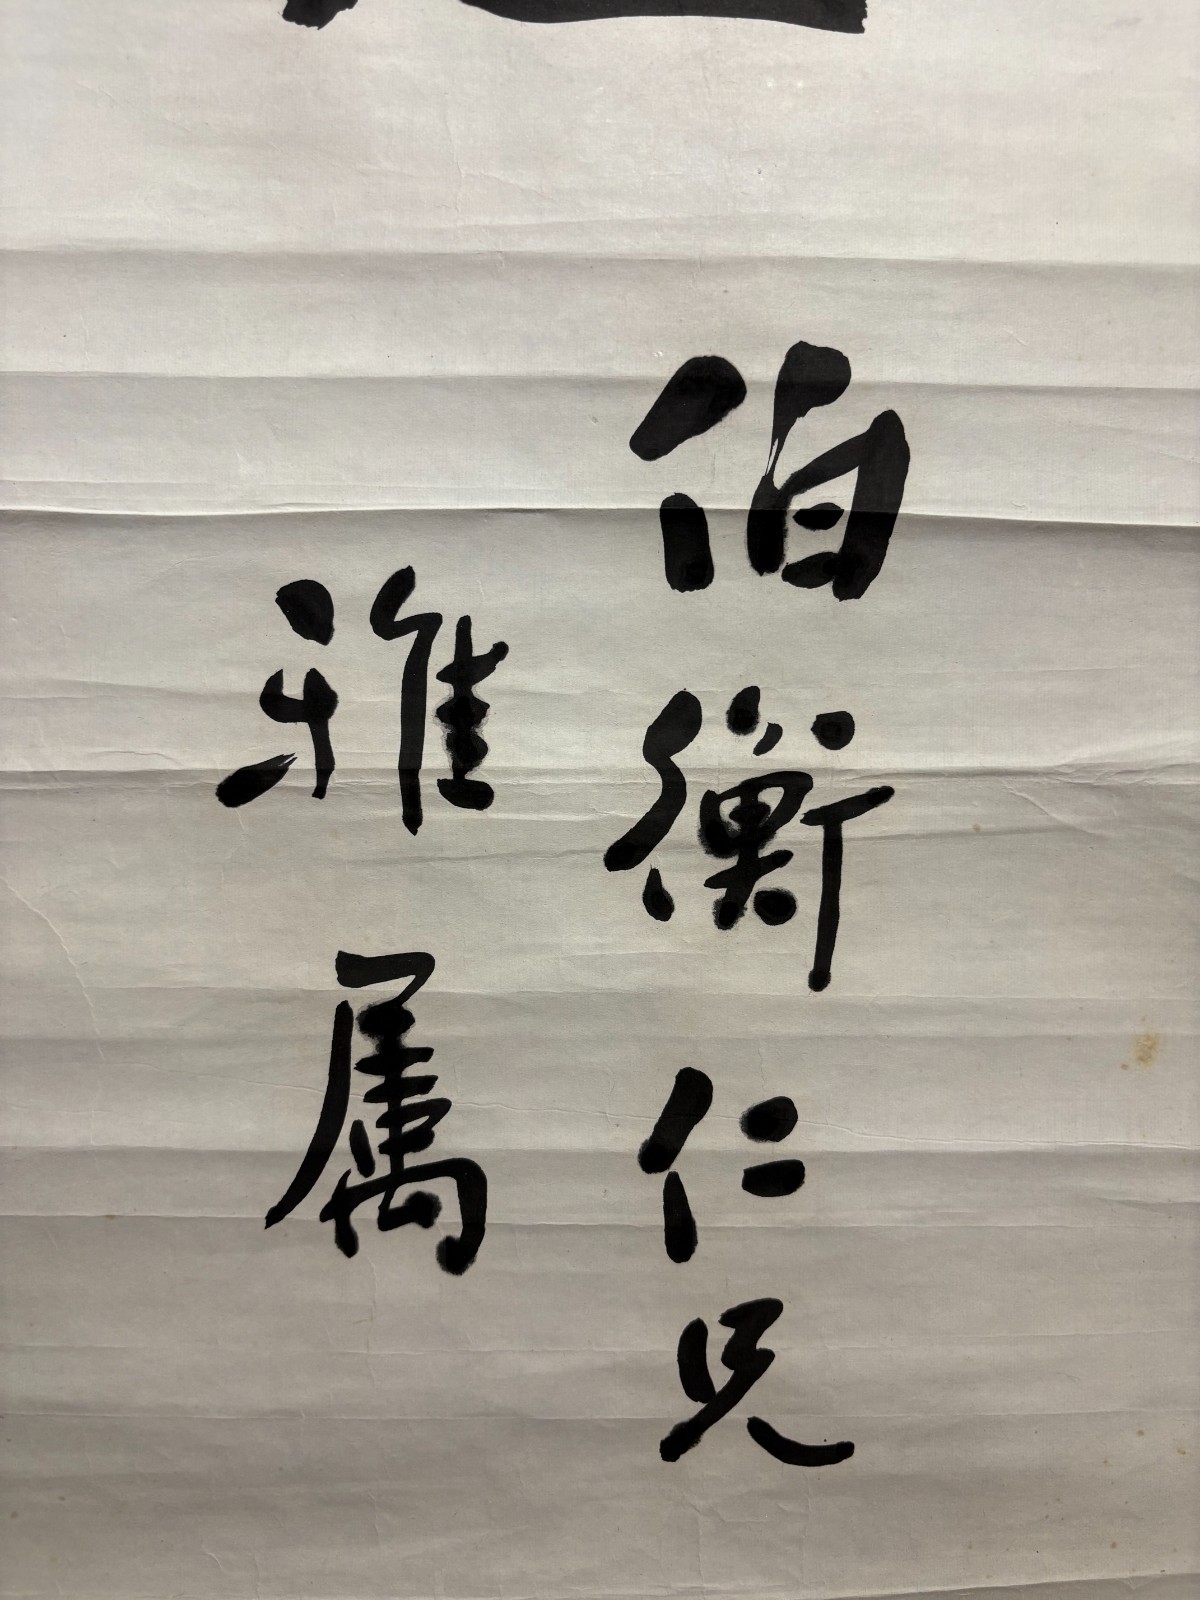 伯衡仁兄
雅属